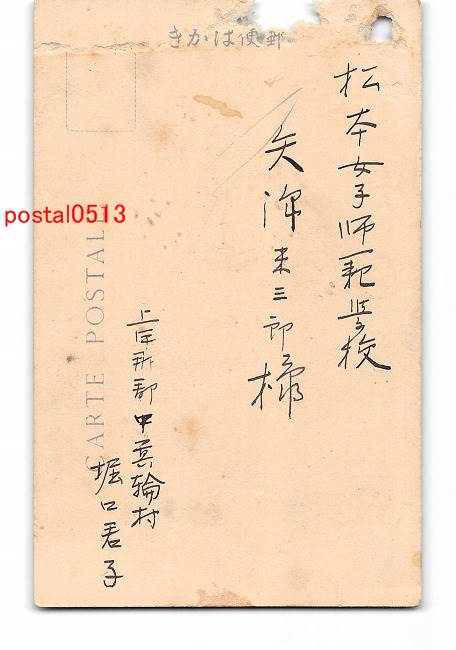 きかは便郵
松本女子師範学校
矢澤米三郎様
上伊那郡中箕輪村
堀口君子
CARTE POSTALE
postal0513